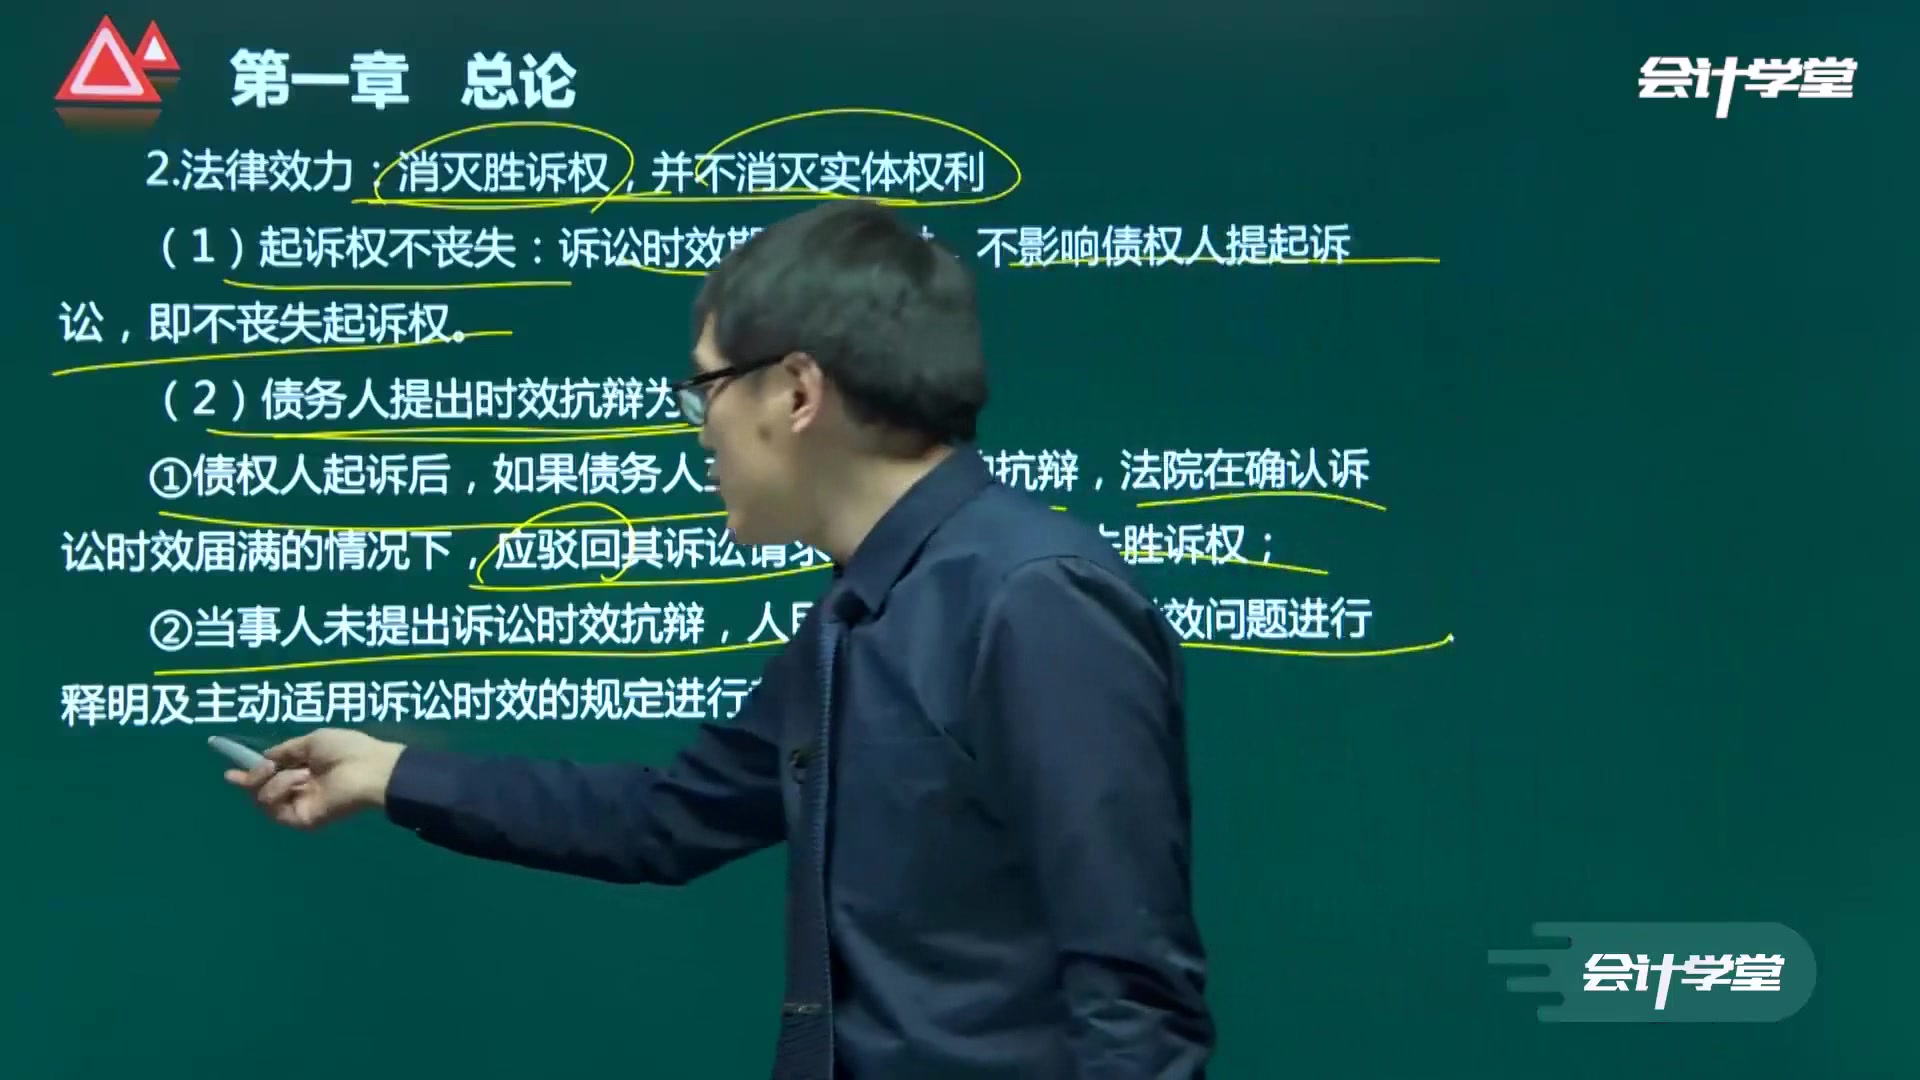 第一章 总论
会计学堂
2.法律效力：消灭胜诉权，并不消灭实体权利
（1）起诉权不丧失：诉讼时效期 不影响债权人提起诉
讼，即不丧失起诉权。
（2）债务人提出时效抗辩为
①债权人起诉后，如果债务人 抗辩，法院在确认诉
讼时效届满的情况下，应驳回其诉讼请求 胜诉权；
②当事人未提出诉讼时效抗辩，人民 效问题进行
释明及主动适用诉讼时效的规定进行
会计学堂